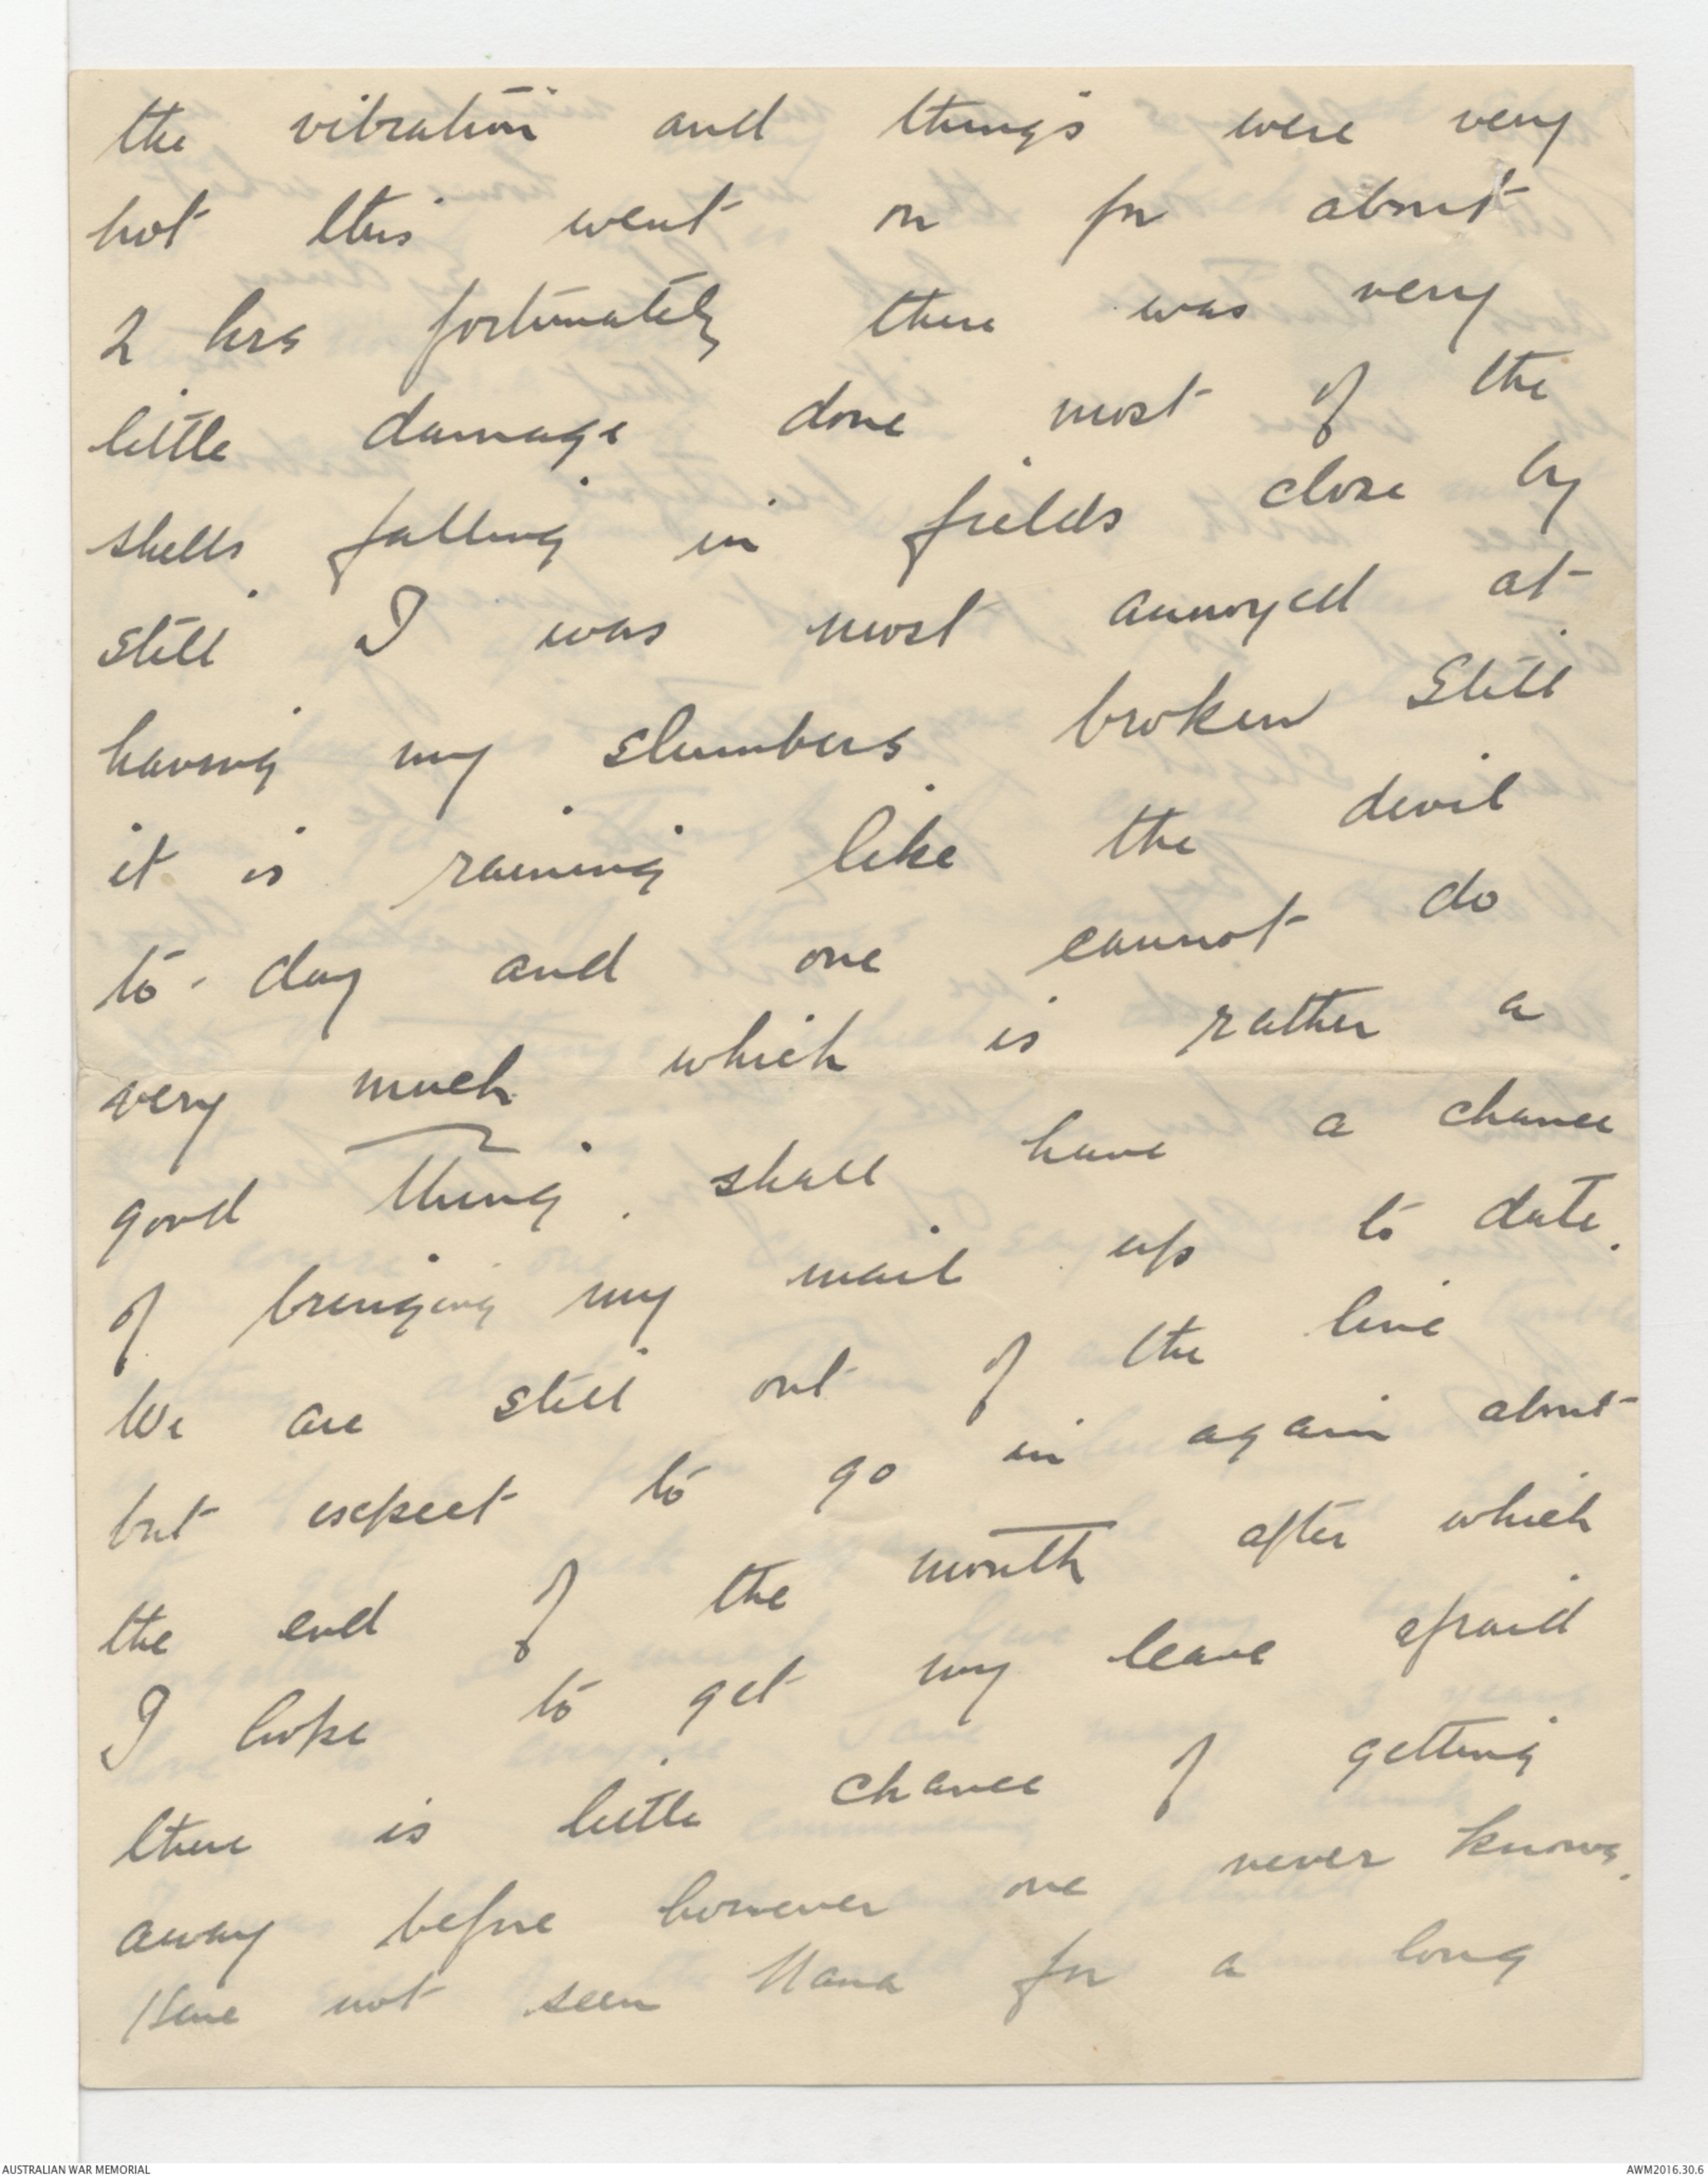 the vibration and things were very
hot this went on for about
2 hrs fortunately there was very
little damage done most of the
shells falling in fields close by
still I was most annoyed at
having my slumbers broken. Still
it is raining like the devil
to-day and one cannot do
very much which is rather a
good thing. shall have a chance
of bringing my mail up to date.
We are still out of the line
but expect to go in again about
the end of the month after which
I hope to get my leave afraid
there is little chance of getting
away before however one never knows.
Have not seen Nana for a long
AUSTRALIAN WAR MEMORIAL
AWM2016.30.6